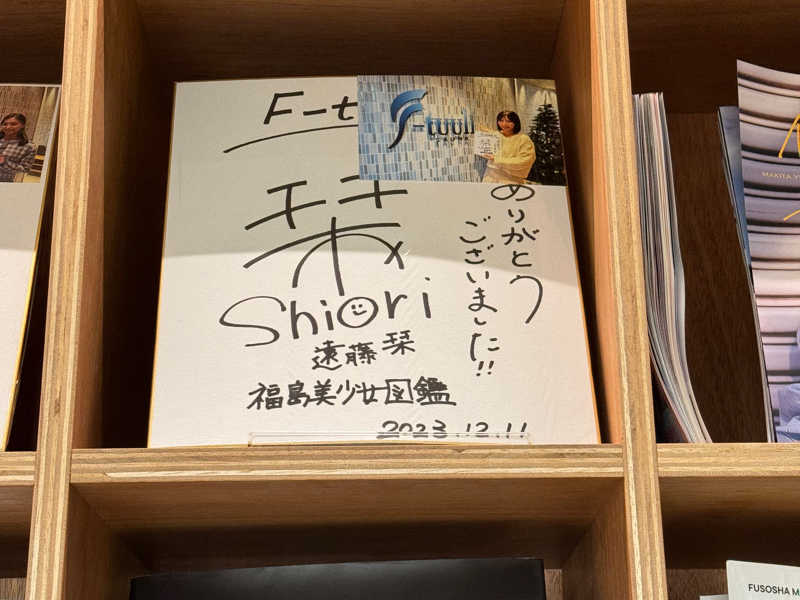 F-t
F-tuuli
SAUNA
栞
Shiori
遠藤 栞
福島美少女図鑑
2023.12.11
ありがとう
ございました!!
MAKITA Y
FUSOSHA M